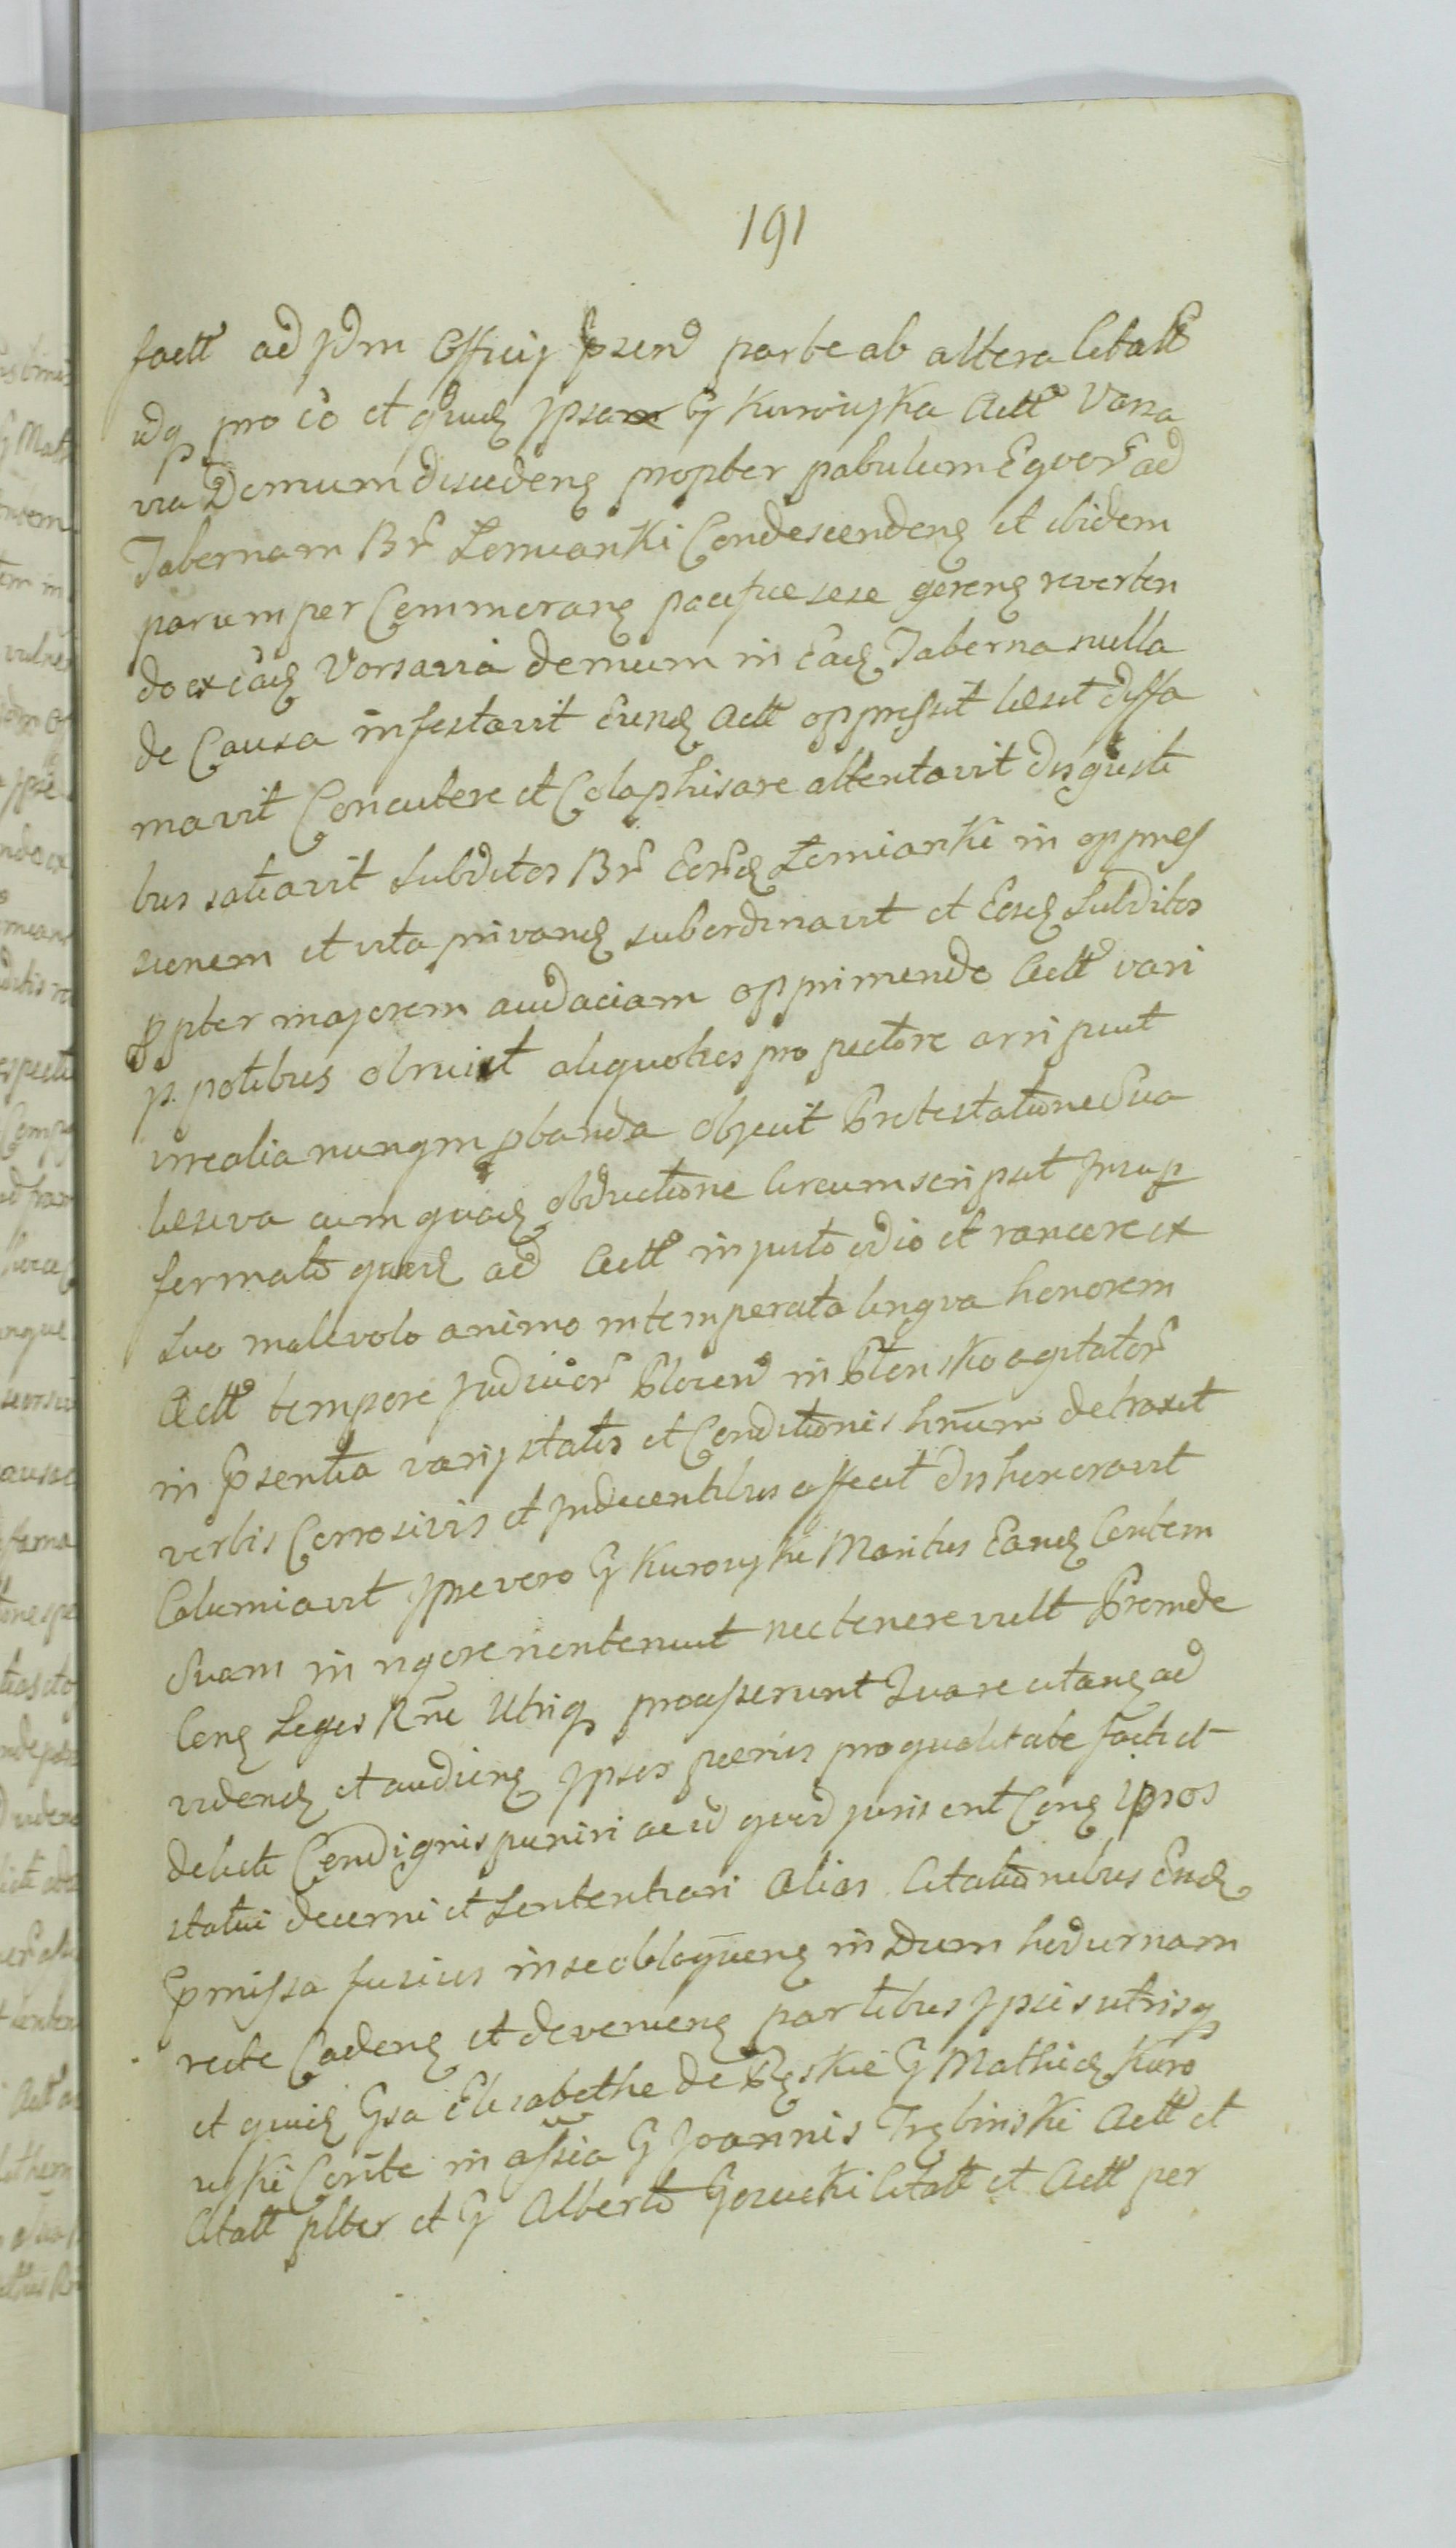 191
factt ad Jdm Officij Psend parte ab altera Citatt
idq pro eo et quia Ipsa G Kurowyska Actt Varsa
via Domum discedens propter pabulum Equor ad
Tabernam Br Lomianki Condescendens et ibidem
parumper Commorans pacifice sese gerens reverten
do ex ead Varsavia domum in Ead Taberna nulla
de Causa infestavit Eund Actt oppressit lesit diffa
mavit Concutere et Colaphisare attentavit disgusti
bus satiavit Subditos Br Eord Lomianki in oppres
sionem et vita privand subordinavit et Eosd Subditos
propter majorem audaciam opprimendo Actt vari
p potibus obruit aliquoties pro pectore arripuit
irrealia nunqm pbanda objecit Protestatione Sua
lesiva cum quad obductione Circumscripsit Insup
formato quod ad Actt in justo odio et rancore ex
Suo malevolo animo intemperata lingva honorem
Actt tempore Judicior Plocen in Plonsko agitator
in Psentia varij status et Conditionis hnum detraxit
verbis Corrosivis et Indecentibus affecit dishonoravit
Calumiavit Ipse vero G Kurowyski Maritus Eand Contem
Suam in rigore non tenuit nec tenere vult Proinde
Cens Leges Rne Utriq processerunt Quare citans ad
vidend et audiens Ipsos poenis pro qualitate facti et
delicti Condignis puniri ac id quod juris erit Cens Ipsos
statui decerni et Sententiari Alias Citationibus End
Pmissa fusius in se obloquens in Dum hodiernam
recte Cadens et deveniens partibus Ipsis utrisq
et quid Gsa Elisabethe de G Mathied Kuro
wyski Conte in assia G Joannis Trębinski Actt et
Citatt plter et G Alberto Gorucki Citatt et Actt per